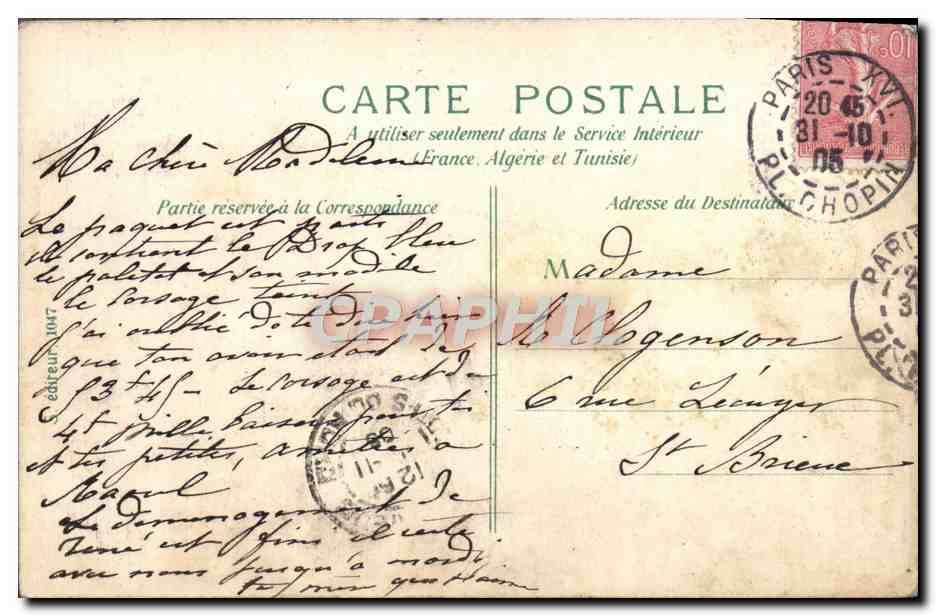 CARTE POSTALE
A utiliser seulement dans le Service Intérieur
(France, Algérie et Tunisie)
Partie réservée à la Correspondance
Adresse du Destinataire
10
PARIS XVI.
20 45
31 -10
05
PL. CHOPIN
PARIS
2
31
PL.
Ma chère Madeleine
Le paquet est parti
il contient le Drap bleu
le paletot et son modèle
le corsage teint
j'ai oublié de te dire hier
que ton avoir était de
53 f 45 - Le corsage est de
4f mille baisers pour toi
et tes petites, amitiés à
Raoul
Le déménagement de
René est fini il reste
avec nous jusqu'à mardi
Madame
Mogenson
6 rue Lécuyer
St Brieuc
S. éditeur. 1047
CPAPHIL
12
11
05